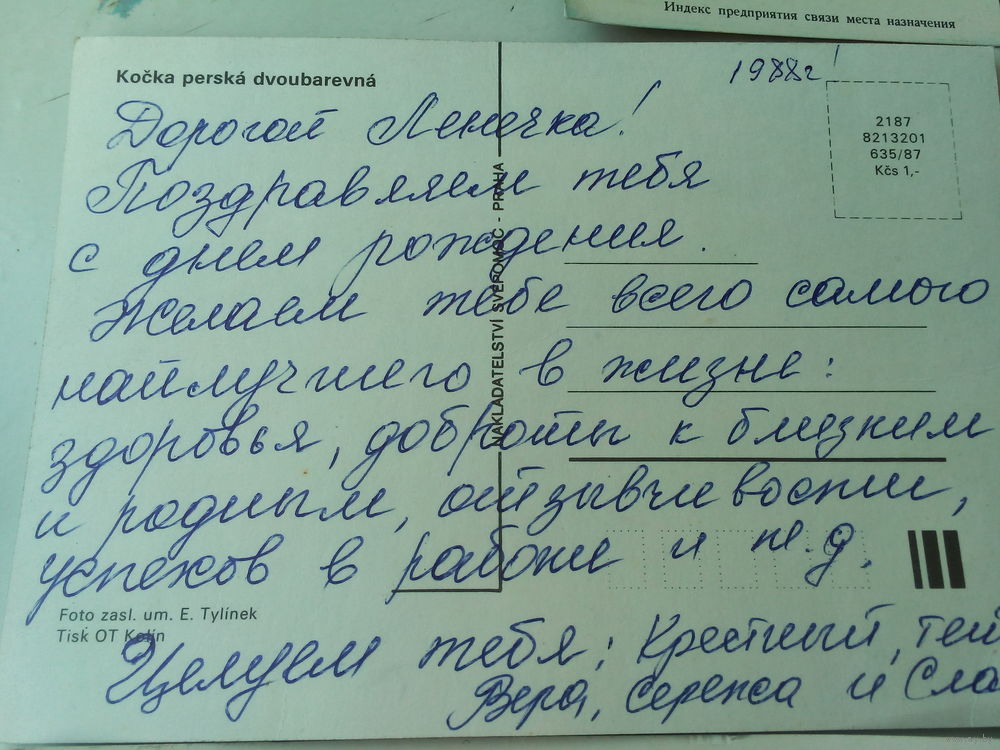 Индекс предприятия связи места назначения
Kočka perská dvoubarevná
1988г!
2187
8213201
635/87
Kčs 1,-
Дорогой Леночка!
Поздравляем тебя
с днем рождения.
Желаем тебе всего самого
найлучшего в жизне:
здоровья, доброты к близким
и родным, отзывчивости,
успехов в работе и т.д.
NAKLADATELSTVÍ SVÉPOMOC - PRAHA
Foto zasl. um. E. Tylínek
Tisk OT Kolín
Целуем тебя: Крестный,
Вера, Сережа и